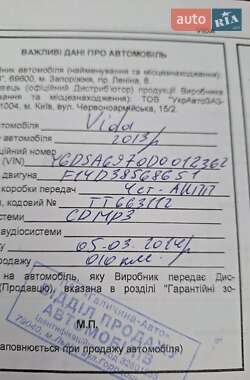 AUTO RIA
ВАЖЛИВІ ДАНІ ПРО АВТОМОБІЛЬ
ник автомобіля (найменування та місцезнаходження):
69600, м. Запоріжжя, пр. Леніна, 8.
вець (офіційний Дистриб'ютор) продукції Виробника
вання та місцезнаходження): ТОВ "УкрАвтоЗАЗ-
1004, м. Київ, вул. Червоноармійська, 15/2.
автомобіля Vida
автомобіля 2013р
ційний номер
(VIN) Y6DSA6970D0012362
двигуна F14D38568651
коробки передач 4ст-АКПП
н, кодовий № TT663112
истеми CDMP3
аудіосистеми
05-03.2014р
продажу 010 км.
на автомобіль, яку Виробник передає Дис-
(Продавцю), вказана в розділі "Гарантійні зо-
М.П.
Галичина-Авто
ВІДДІЛ ПРОДАЖУ
АВТОМОБІЛІВ
аповнюється при продажу автомобіля)